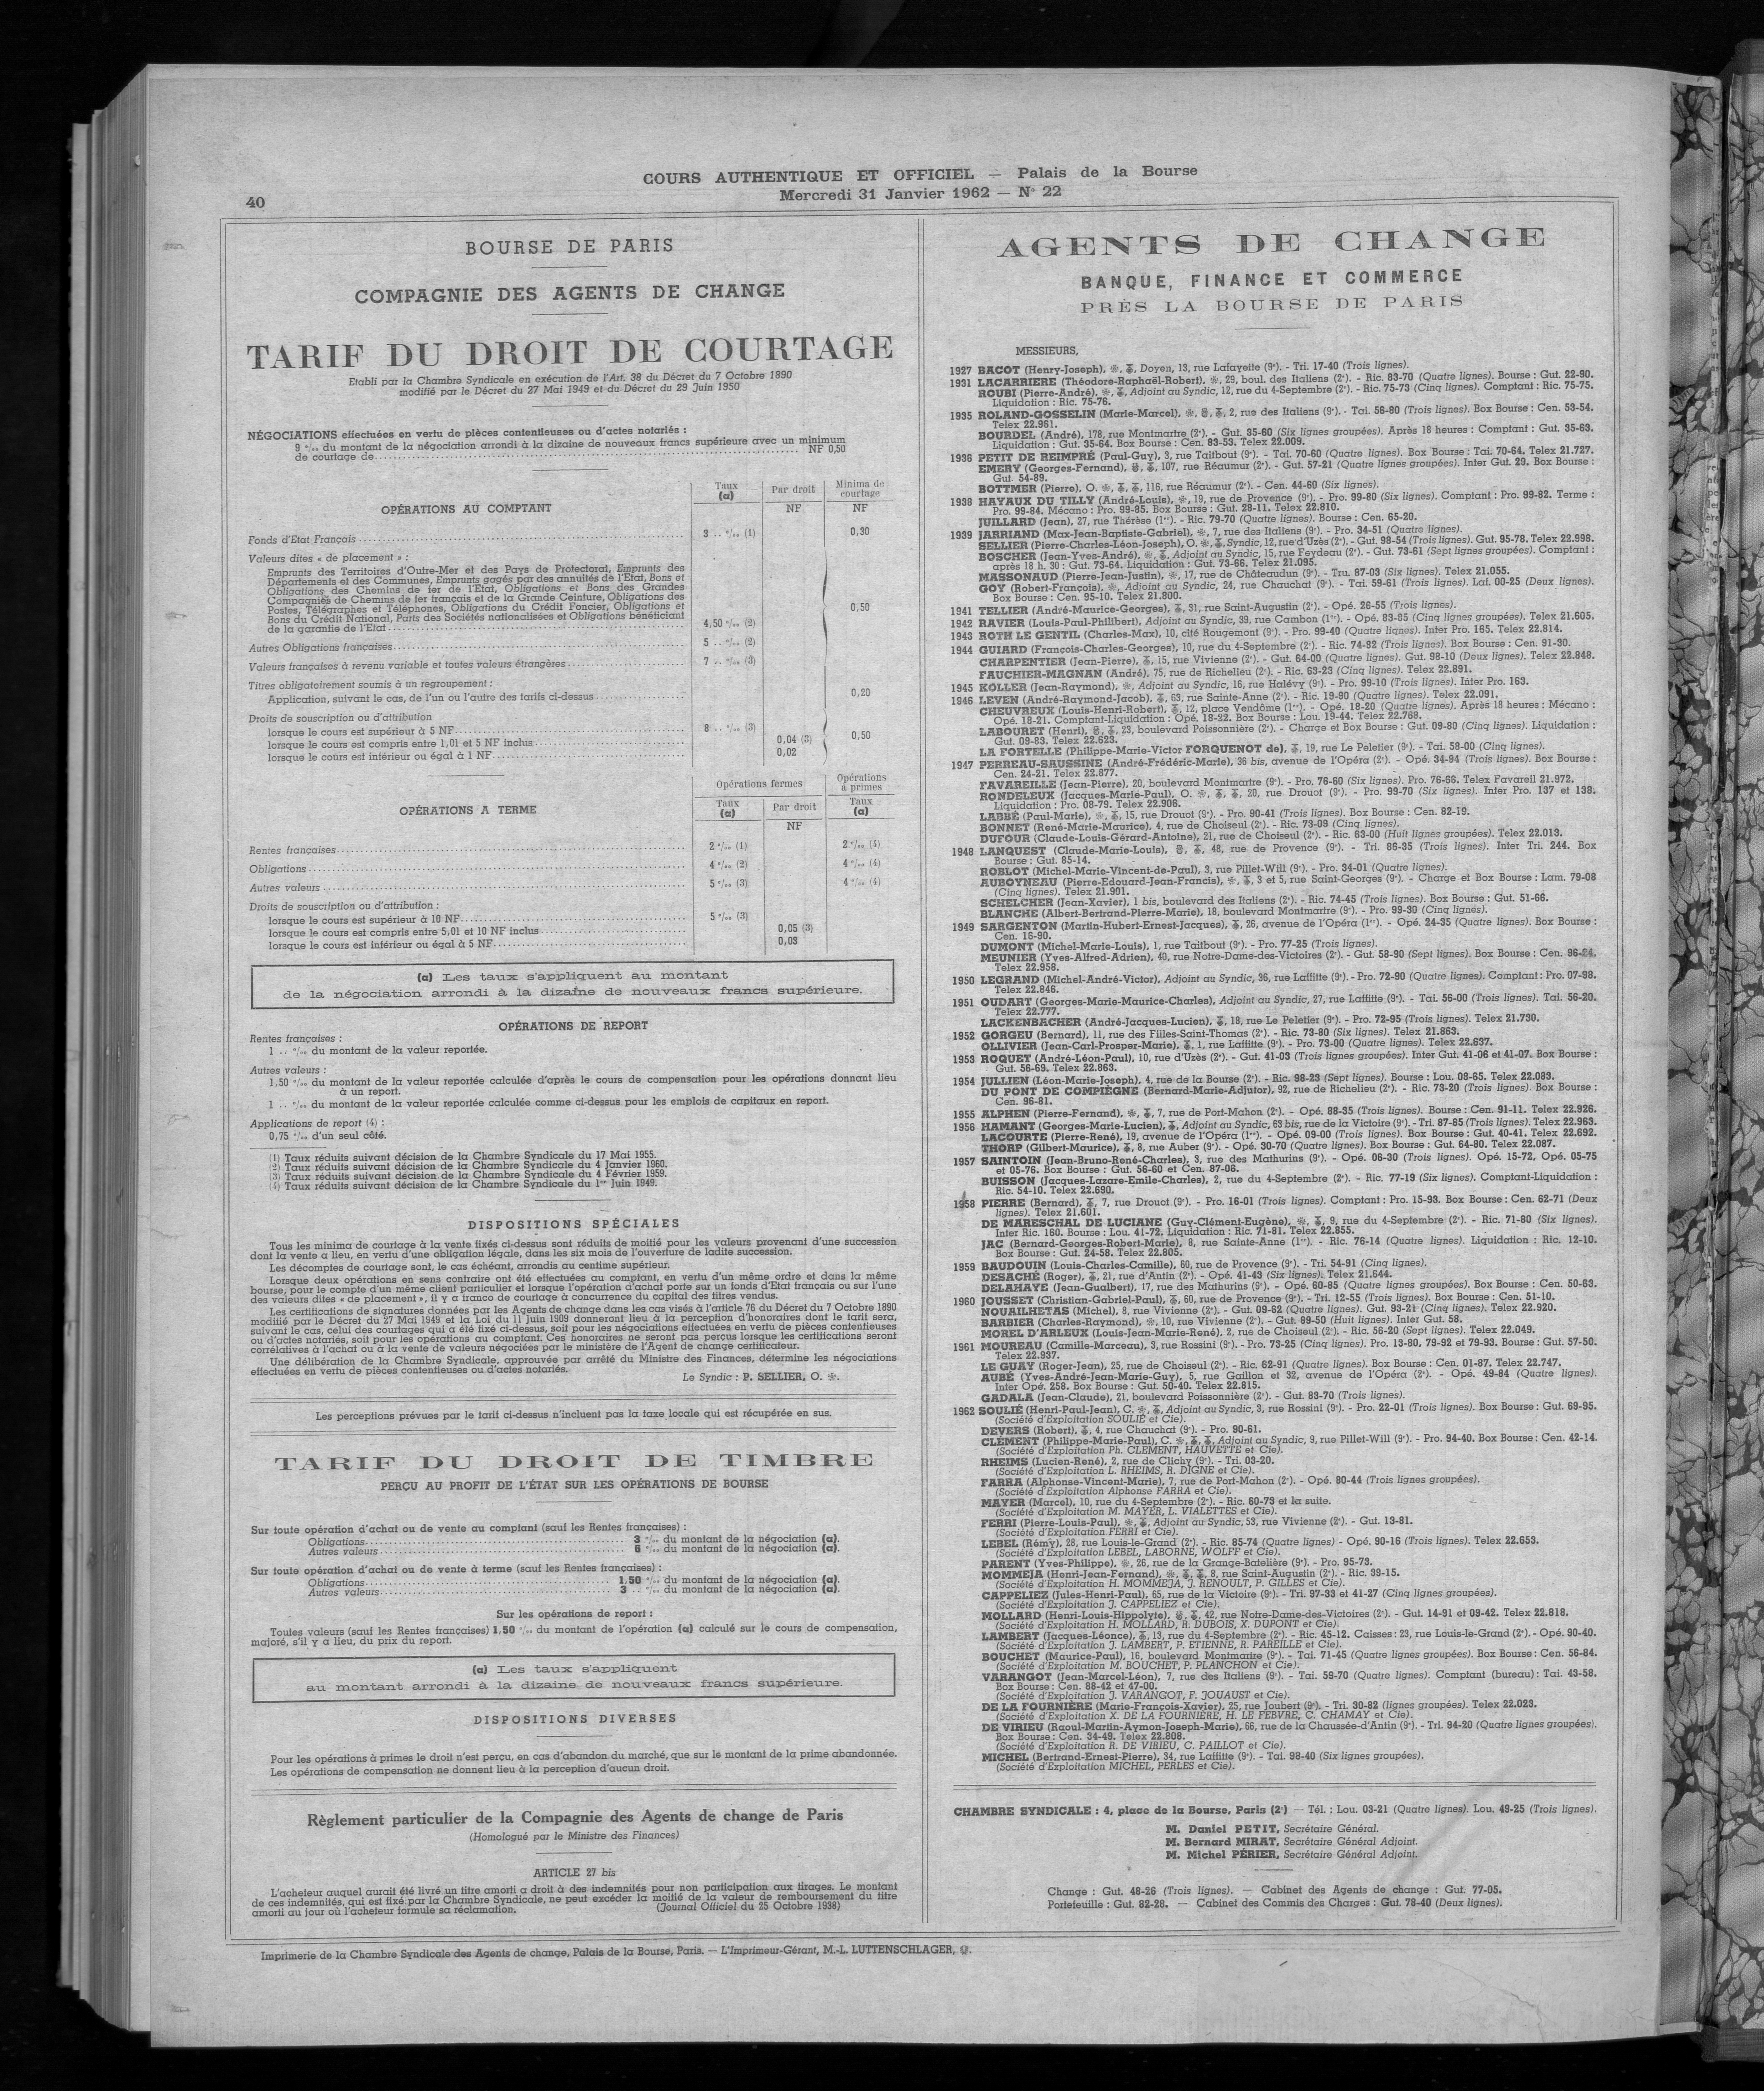 COURS AUTHENTIQUE ET OFFICIEL — Palais de la Bourse
40
Mercredi 31 Janvier 1962 — N° 22
BOURSE DE PARIS
COMPAGNIE DES AGENTS DE CHANGE
TARIF DU DROIT DE COURTAGE
Etabli par la Chambre Syndicale en exécution de l'Art. 38 du Décret du 7 Octobre 1890
modifié par le Décret du 27 Mai 1949 et du Décret du 29 Juin 1950
NÉGOCIATIONS effectuées en vertu de pièces contentieuses ou d'actes notariés :
9 °/oo du montant de la négociation arrondi à la dizaine de nouveaux francs supérieure avec un minimum
de courtage de NF 0,50
OPÉRATIONS AU COMPTANT
Taux (a) Par droit Minima de courtage
NF NF
Fonds d'Etat Français 3 .. °/oo (1) 0,30
Valeurs dites « de placement » :
Emprunts des Territoires d'Outre-Mer et des Pays de Protectorat, Emprunts des
Départements et des Communes, Emprunts gagés par des annuités de l'Etat, Bons et
Obligations des Chemins de fer de l'Etat, Obligations et Bons des Grandes
Compagnies de Chemins de fer français et de la Grande Ceinture, Obligations des
Postes, Télégraphes et Téléphones, Obligations du Crédit Foncier, Obligations et
Bons du Crédit National, Parts des Sociétés nationalisées et Obligations bénéficiant
de la garantie de l'Etat 4,50 °/oo (2) 0,50
Autres Obligations françaises 5 .. °/oo (2)
Valeurs françaises à revenu variable et toutes valeurs étrangères 7 .. °/oo (3)
Titres obligatoirement soumis à un regroupement :
Application, suivant le cas, de l'un ou l'autre des tarifs ci-dessus 0,20
Droits de souscription ou d'attribution
lorsque le cours est supérieur à 5 NF 8 .. °/oo (3)
lorsque le cours est compris entre 1,01 et 5 NF inclus 0,04 (3) 0,50
lorsque le cours est inférieur ou égal à 1 NF 0,02
OPÉRATIONS A TERME
Opérations fermes Opérations à primes
Taux (a) Par droit Taux (a)
NF
Rentes françaises 2 °/oo (1) 2 °/oo (4)
Obligations 4 °/oo (2) 4 °/oo (4)
Autres valeurs 5 °/oo (3) 4 °/oo (4)
Droits de souscription ou d'attribution :
lorsque le cours est supérieur à 10 NF 5 °/oo (3)
lorsque le cours est compris entre 5,01 et 10 NF inclus 0,05 (3)
lorsque le cours est inférieur ou égal à 5 NF 0,03
(a) Les taux s'appliquent au montant
de la négociation arrondi à la dizaine de nouveaux francs supérieure.
OPÉRATIONS DE REPORT
Rentes françaises :
1 .. °/oo du montant de la valeur reportée.
Autres valeurs :
1,50 °/oo du montant de la valeur reportée calculée d'après le cours de compensation pour les opérations donnant lieu
à un report.
1 .. °/oo du montant de la valeur reportée calculée comme ci-dessus pour les emplois de capitaux en report.
Applications de report (4) :
0,75 °/oo d'un seul côté.
(1) Taux réduits suivant décision de la Chambre Syndicale du 17 Mai 1955.
(2) Taux réduits suivant décision de la Chambre Syndicale du 4 Janvier 1960.
(3) Taux réduits suivant décision de la Chambre Syndicale du 4 Février 1959.
(4) Taux réduits suivant décision de la Chambre Syndicale du 1er Juin 1949.
DISPOSITIONS SPÉCIALES
Tous les minima de courtage à la vente fixés ci-dessus sont réduits de moitié pour les valeurs provenant d'une succession
dont la vente a lieu, en vertu d'une obligation légale, dans les six mois de l'ouverture de ladite succession.
Les décomptes de courtage sont, le cas échéant, arrondis au centime supérieur.
Lorsque deux opérations en sens contraire ont été effectuées au comptant, en vertu d'un même ordre et dans la même
bourse, pour le compte d'un même client particulier et lorsque l'opération d'achat porte sur un fonds d'Etat français ou sur l'une
des valeurs dites « de placement », il y a franco de courtage à concurrence du capital des titres vendus.
Les certifications de signatures données par les Agents de change dans les cas visés à l'article 76 du Décret du 7 Octobre 1890
modifié par le Décret du 27 Mai 1949 et la Loi du 11 Juin 1909 donneront lieu à la perception d'honoraires dont le tarif sera,
suivant le cas, celui des courtages qui a été fixé ci-dessus, soit pour les négociations effectuées en vertu de pièces contentieuses
ou d'actes notariés, soit pour les opérations au comptant. Ces honoraires ne seront pas perçus lorsque les certifications seront
corrélatives à l'achat ou à la vente de valeurs négociées par le ministère de l'Agent de change certificateur.
Une délibération de la Chambre Syndicale, approuvée par arrêté du Ministre des Finances, détermine les négociations
effectuées en vertu de pièces contentieuses ou d'actes notariés.
Le Syndic : P. SELLIER, O. ※.
Les perceptions prévues par le tarif ci-dessus n'incluent pas la taxe locale qui est récupérée en sus.
TARIF DU DROIT DE TIMBRE
PERÇU AU PROFIT DE L'ÉTAT SUR LES OPÉRATIONS DE BOURSE
Sur toute opération d'achat ou de vente au comptant (sauf les Rentes françaises) :
Obligations 3 °/oo du montant de la négociation (a).
Autres valeurs 6 °/oo du montant de la négociation (a).
Sur toute opération d'achat ou de vente à terme (sauf les Rentes françaises) :
Obligations 1,50 °/oo du montant de la négociation (a).
Autres valeurs 3 .. °/oo du montant de la négociation (a).
Sur les opérations de report :
Toutes valeurs (sauf les Rentes françaises) 1,50 °/oo du montant de l'opération (a) calculé sur le cours de compensation,
majoré, s'il y a lieu, du prix du report.
(a) Les taux s'appliquent
au montant arrondi à la dizaine de nouveaux francs supérieure.
DISPOSITIONS DIVERSES
Pour les opérations à primes le droit n'est perçu, en cas d'abandon du marché, que sur le montant de la prime abandonnée.
Les opérations de compensation ne donnent lieu à la perception d'aucun droit.
Règlement particulier de la Compagnie des Agents de change de Paris
(Homologué par le Ministre des Finances)
ARTICLE 27 bis
L'acheteur auquel aurait été livré un titre amorti a droit à des indemnités pour non participation aux tirages. Le montant
de ces indemnités, qui est fixé par la Chambre Syndicale, ne peut excéder la moitié de la valeur de remboursement du titre
amorti au jour où l'acheteur formule sa réclamation. (Journal Officiel du 25 Octobre 1938)
AGENTS DE CHANGE
BANQUE, FINANCE ET COMMERCE
PRÈS LA BOURSE DE PARIS
MESSIEURS,
1927 BACOT (Henry-Joseph), Doyen, 13, rue Lafayette (9e). - Tri. 17-40 (Trois lignes).
1931 LACARRIERE (Théodore-Raphaël-Robert), 29, boul. des Italiens (2e). - Ric. 83-70 (Quatre lignes). Bourse : Gut. 22-90.
ROUBI (Pierre-André), Adjoint au Syndic, 12, rue du 4-Septembre (2e). - Ric. 75-73 (Cinq lignes). Comptant : Ric. 75-75.
Liquidation : Ric. 75-76.
1935 ROLAND-GOSSELIN (Marie-Marcel), 2, rue des Italiens (9e). - Tai. 56-80 (Trois lignes). Box Bourse : Cen. 53-54.
Telex 22.961.
BOURDEL (André), 178, rue Montmartre (2e). - Gut. 35-60 (Six lignes groupées). Après 18 heures : Comptant : Gut. 35-63.
Liquidation : Gut. 35-64. Box Bourse : Cen. 83-53. Telex 22.009.
1936 PETIT DE REIMPRÉ (Paul-Guy), 3, rue Taitbout (9e). - Tai. 70-60 (Quatre lignes). Box Bourse : Tai. 70-64. Telex 21.727.
EMERY (Georges-Fernand), 107, rue Réaumur (2e). - Gut. 57-21 (Quatre lignes groupées). Inter Gut. 29. Box Bourse :
Gut. 54-89.
BOTTMER (Pierre), O. 116, rue Réaumur (2e). - Cen. 44-60 (Six lignes).
1938 HAYAUX DU TILLY (André-Louis), 19, rue de Provence (9e). - Pro. 99-80 (Six lignes). Comptant : Pro. 99-82. Terme :
Pro. 99-84. Mécano : Pro. 99-85. Box Bourse : Gut. 28-11. Telex 22.810.
JUILLARD (Jean), 27, rue Thérèse (1er). - Ric. 79-70 (Quatre lignes). Bourse : Cen. 65-20.
1939 JARRIAND (Max-Jean-Baptiste-Gabriel), 7, rue des Italiens (9e). - Pro. 34-51 (Quatre lignes).
SELLIER (Pierre-Charles-Léon-Joseph), O. Syndic, 12, rue d'Uzès (2e). - Gut. 98-54 (Trois lignes). Gut. 95-78. Telex 22.998.
BOSCHER (Jean-Yves-André), Adjoint au Syndic, 15, rue Feydeau (2e). - Gut. 73-61 (Sept lignes groupées). Comptant :
après 18 h. 30 : Gut. 73-64. Liquidation : Gut. 73-66. Telex 21.095.
MASSONAUD (Pierre-Jean-Justin), 17, rue de Châteaudun (9e). - Tru. 87-03 (Six lignes). Telex 21.055.
GOY (Robert-François), Adjoint au Syndic, 24, rue Chauchat (9e). - Tai. 59-61 (Trois lignes). Laf. 00-25 (Deux lignes).
Box Bourse : Cen. 95-10. Telex 21.800.
1941 TELLIER (André-Maurice-Georges), 31, rue Saint-Augustin (2e). - Opé. 26-55 (Trois lignes).
1942 RAVIER (Louis-Paul-Philibert), Adjoint au Syndic, 39, rue Cambon (1er). - Opé. 83-65 (Cinq lignes groupées). Telex 21.605.
1943 ROTH LE GENTIL (Charles-Max), 10, cité Rougemont (9e). - Pro. 99-40 (Quatre lignes). Inter Pro. 165. Telex 22.814.
1944 GUIARD (François-Charles-Georges), 10, rue du 4-Septembre (2e). - Ric. 74-92 (Trois lignes). Box Bourse : Cen. 91-30.
CHARPENTIER (Jean-Pierre), 15, rue Vivienne (2e). - Gut. 64-00 (Quatre lignes). Gut. 98-10 (Deux lignes). Telex 22.848.
FAUCHIER-MAGNAN (André), 75, rue de Richelieu (2e). - Ric. 63-23 (Cinq lignes). Telex 22.891.
1945 KOLLER (Jean-Raymond), Adjoint au Syndic, 16, rue Halévy (9e). - Pro. 99-10 (Trois lignes). Inter Pro. 163.
1946 LEVEN (André-Raymond-Jacob), 63, rue Sainte-Anne (2e). - Ric. 19-90 (Quatre lignes). Telex 22.091.
CHEUVREUX (Louis-Henri-Robert), 12, place Vendôme (1er). - Opé. 18-20 (Quatre lignes). Après 18 heures : Mécano :
Opé. 18-21. Comptant-Liquidation : Opé. 18-22. Box Bourse : Lou. 19-44. Telex 22.769.
LABOURET (Henri), 23, boulevard Poissonnière (2e). - Charge et Box Bourse : Gut. 09-80 (Cinq lignes). Liquidation :
Gut. 09-83. Telex 22.623.
LA FORTELLE (Philippe-Marie-Victor FORQUENOT de), 19, rue Le Peletier (9e). - Tai. 58-00 (Cinq lignes).
1947 PERREAU-SAUSSINE (André-Frédéric-Marie), 36 bis, avenue de l'Opéra (2e). - Opé. 34-94 (Trois lignes). Box Bourse :
Cen. 24-21. Telex 22.877.
FAVAREILLE (Jean-Pierre), 20, boulevard Montmartre (9e). - Pro. 76-60 (Six lignes). Pro. 76-66. Telex Favareil 21.972.
RONDELEUX (Jacques-Marie-Paul), O. 20, rue Drouot (9e). - Pro. 99-70 (Six lignes). Inter Pro. 137 et 138.
Liquidation : Pro. 08-79. Telex 22.906.
LABBÉ (Paul-Marie), 15, rue Drouot (9e). - Pro. 90-41 (Trois lignes). Box Bourse : Cen. 82-19.
BONNET (René-Marie-Maurice), 4, rue de Choiseul (2e). - Ric. 73-09 (Cinq lignes).
DUFOUR (Claude-Louis-Gérard-Antoine), 21, rue de Choiseul (2e). - Ric. 63-00 (Huit lignes groupées). Telex 22.013.
1948 LANQUEST (Claude-Marie-Louis), 48, rue de Provence (9e). - Tri. 86-35 (Trois lignes). Inter Tri. 244. Box
Bourse : Gut. 85-14.
ROBLOT (Michel-Marie-Vincent-de-Paul), 3, rue Pillet-Will (9e). - Pro. 34-01 (Quatre lignes).
AUBOYNEAU (Pierre-Edouard-Jean-Francis), 3 et 5, rue Saint-Georges (9e). - Charge et Box Bourse : Lam. 79-08
(Cinq lignes). Telex 21.901.
SCHELCHER (Jean-Xavier), 1 bis, boulevard des Italiens (2e). - Ric. 74-45 (Trois lignes). Box Bourse : Gut. 51-66.
BLANCHE (Albert-Bertrand-Pierre-Marie), 18, boulevard Montmartre (9e). - Pro. 99-30 (Cinq lignes).
1949 SARGENTON (Martin-Hubert-Ernest-Jacques), 26, avenue de l'Opéra (1er). - Opé. 24-35 (Quatre lignes). Box Bourse :
Cen. 18-90.
DUMONT (Michel-Marie-Louis), 1, rue Taitbout (9e). - Pro. 77-25 (Trois lignes).
MEUNIER (Yves-Alfred-Adrien), 40, rue Notre-Dame-des-Victoires (2e). - Gut. 58-90 (Sept lignes). Box Bourse : Cen. 96-24.
Telex 22.958.
1950 LEGRAND (Michel-André-Victor), Adjoint au Syndic, 36, rue Laffitte (9e). - Pro. 72-90 (Quatre lignes). Comptant : Pro. 07-98.
Telex 22.846.
1951 OUDART (Georges-Marie-Maurice-Charles), Adjoint au Syndic, 27, rue Laffitte (9e). - Tai. 56-00 (Trois lignes). Tai. 56-20.
Telex 22.777.
LACKENBACHER (André-Jacques-Lucien), 18, rue Le Peletier (9e). - Pro. 72-95 (Trois lignes). Telex 21.730.
1952 GORGEU (Bernard), 11, rue des Filles-Saint-Thomas (2e). - Ric. 73-80 (Six lignes). Telex 21.863.
OLLIVIER (Jean-Carl-Prosper-Marie), 1, rue Laffitte (9e). - Pro. 73-00 (Quatre lignes). Telex 22.637.
1953 ROQUET (André-Léon-Paul), 10, rue d'Uzès (2e). - Gut. 41-03 (Trois lignes groupées). Inter Gut. 41-06 et 41-07. Box Bourse :
Gut. 56-69. Telex 22.863.
1954 JULLIEN (Léon-Marie-Joseph), 4, rue de la Bourse (2e). - Ric. 98-23 (Sept lignes). Bourse : Lou. 08-65. Telex 22.083.
DU PONT DE COMPIÈGNE (Bernard-Marie-Adjutor), 92, rue de Richelieu (2e). - Ric. 73-20 (Trois lignes). Box Bourse :
Cen. 96-81.
1955 ALPHEN (Pierre-Fernand), 7, rue de Port-Mahon (2e). - Opé. 88-35 (Trois lignes). Bourse : Cen. 91-11. Telex 22.926.
1956 HAMANT (Georges-Marie-Lucien), Adjoint au Syndic, 63 bis, rue de la Victoire (9e). - Tri. 87-85 (Trois lignes). Telex 22.963.
LACOURTE (Pierre-René), 19, avenue de l'Opéra (1er). - Opé. 09-00 (Trois lignes). Box Bourse : Gut. 40-41. Telex 22.692.
THORP (Gilbert-Maurice), 8, rue Auber (9e). - Opé. 30-70 (Quatre lignes). Box Bourse : Gut. 64-80. Telex 22.087.
1957 SAINTOIN (Jean-Bruno-René-Charles), 3, rue des Mathurins (9e). - Opé. 06-30 (Trois lignes). Opé. 15-72, Opé. 05-75
et 05-76. Box Bourse : Gut. 56-60 et Cen. 87-06.
BUISSON (Jacques-Lazare-Emile-Charles), 2, rue du 4-Septembre (2e). - Ric. 77-19 (Six lignes). Comptant-Liquidation :
Ric. 54-10. Telex 22.690.
1958 PIERRE (Bernard), 7, rue Drouot (9e). - Pro. 16-01 (Trois lignes). Comptant : Pro. 15-93. Box Bourse : Cen. 62-71 (Deux
lignes). Telex 21.601.
DE MARESCHAL DE LUCIANE (Guy-Clément-Eugène), 9, rue du 4-Septembre (2e). - Ric. 71-80 (Six lignes).
Inter Ric. 160. Bourse : Lou. 41-72. Liquidation : Ric. 71-81. Telex 22.855.
JAC (Bernard-Georges-Robert-Marie), 8, rue Sainte-Anne (1er). - Ric. 76-14 (Quatre lignes). Liquidation : Ric. 12-10.
Box Bourse : Gut. 24-58. Telex 22.805.
1959 BAUDOUIN (Louis-Charles-Camille), 60, rue de Provence (9e). - Tri. 54-91 (Cinq lignes).
DESACHÉ (Roger), 21, rue d'Antin (2e). - Opé. 41-43 (Six lignes). Telex 21.644.
DELAHAYE (Jean-Gualbert), 17, rue des Mathurins (9e). - Opé. 60-85 (Quatre lignes groupées). Box Bourse : Cen. 50-63.
1960 JOUSSET (Christian-Gabriel-Paul), 60, rue de Provence (9e). - Tri. 12-55 (Trois lignes). Box Bourse : Cen. 51-10.
NOUAILHETAS (Michel), 8, rue Vivienne (2e). - Gut. 09-62 (Quatre lignes). Gut. 93-21 (Cinq lignes). Telex 22.920.
BARBIER (Charles-Raymond), 10, rue Vivienne (2e). - Gut. 69-50 (Huit lignes). Inter Gut. 58.
MOREL D'ARLEUX (Louis-Jean-Marie-René), 2, rue de Choiseul (2e). - Ric. 56-20 (Sept lignes). Telex 22.049.
1961 MOUREAU (Camille-Marceau), 3, rue Rossini (9e). - Pro. 73-25 (Cinq lignes). Pro. 13-80, 79-92 et 79-93. Bourse : Gut. 57-50.
Telex 22.937.
LE GUAY (Roger-Jean), 25, rue de Choiseul (2e). - Ric. 62-91 (Quatre lignes). Box Bourse : Cen. 01-87. Telex 22.747.
AUBÉ (Yves-André-Jean-Marie-Guy), 5, rue Gaillon et 32, avenue de l'Opéra (2e). - Opé. 49-84 (Quatre lignes).
Inter Opé. 258. Box Bourse : Gut. 50-40. Telex 22.815.
GADALA (Jean-Claude), 21, boulevard Poissonnière (2e). - Gut. 83-70 (Trois lignes).
1962 SOULIÉ (Henri-Paul-Jean), C. Adjoint au Syndic, 3, rue Rossini (9e). - Pro. 22-01 (Trois lignes). Box Bourse : Gut. 69-95.
(Société d'Exploitation SOULIÉ et Cie).
DEVERS (Robert), 4, rue Chauchat (9e). - Pro. 90-61.
CLÉMENT (Philippe-Marie-Paul), C. Adjoint au Syndic, 9, rue Pillet-Will (9e). - Pro. 94-40. Box Bourse : Cen. 42-14.
(Société d'Exploitation Ph. CLEMENT, HAUVETTE et Cie).
RHEIMS (Lucien-René), 2, rue de Clichy (9e). - Tri. 03-20.
(Société d'Exploitation L. RHEIMS, R. DIGNE et Cie).
FARRA (Alphonse-Vincent-Marie), 7, rue de Port-Mahon (2e). - Opé. 80-44 (Trois lignes groupées).
(Société d'Exploitation Alphonse FARRA et Cie).
MAYER (Marcel), 10, rue du 4-Septembre (2e). - Ric. 60-73 et la suite.
(Société d'Exploitation M. MAYER, L. VIALETTES et Cie).
FERRI (Pierre-Louis-Paul), Adjoint au Syndic, 53, rue Vivienne (2e). - Gut. 13-81.
(Société d'Exploitation FERRI et Cie).
LEBEL (Rémy), 28, rue Louis-le-Grand (2e). - Ric. 85-74 (Quatre lignes) - Opé. 90-16 (Trois lignes). Telex 22.653.
(Société d'Exploitation LEBEL, LABORNE, WOLFF et Cie).
PARENT (Yves-Philippe), 26, rue de la Grange-Batelière (9e). - Pro. 95-73.
MOMMEJA (Henri-Jean-Fernand), 8, rue Saint-Augustin (2e). - Ric. 39-15.
(Société d'Exploitation H. MOMMEJA, J. RENOULT, P. GILLES et Cie).
CAPPELIEZ (Jules-Henri-Paul), 65, rue de la Victoire (9e). - Tri. 97-33 et 41-27 (Cinq lignes groupées).
(Société d'Exploitation J. CAPPELIEZ et Cie).
MOLLARD (Henri-Louis-Hippolyte), 42, rue Notre-Dame-des-Victoires (2e). - Gut. 14-91 et 09-42. Telex 22.818.
(Société d'Exploitation H. MOLLARD, R. DUBOIS, X. DUPONT et Cie).
LAMBERT (Jacques-Léonce), 13, rue du 4-Septembre (2e). - Ric. 45-12. Caisses : 23, rue Louis-le-Grand (2e). - Opé. 90-40.
(Société d'Exploitation J. LAMBERT, P. ETIENNE, R. PAREILLE et Cie).
BOUCHET (Maurice-Paul), 16, boulevard Montmartre (9e). - Tai. 71-45 (Quatre lignes groupées). Box Bourse : Cen. 56-84.
(Société d'Exploitation M. BOUCHET, P. PLANCHON et Cie).
VARANGOT (Jean-Marcel-Léon), 7, rue des Italiens (9e). - Tai. 59-70 (Quatre lignes). Comptant (bureau) : Tai. 43-58.
Box Bourse : Cen. 88-42 et 47-00.
(Société d'Exploitation J. VARANGOT, F. JOUAUST et Cie).
DE LA FOURNIÈRE (Marie-François-Xavier), 25, rue Joubert (9e). - Tri. 30-82 (lignes groupées). Telex 22.023.
(Société d'Exploitation X. DE LA FOURNIÈRE, H. LE FEBVRE, C. CHAMAY et Cie).
DE VIRIEU (Raoul-Martin-Aymon-Joseph-Marie), 66, rue de la Chaussée-d'Antin (9e). - Tri. 94-20 (Quatre lignes groupées).
Box Bourse : Cen. 34-49. Telex 22.808.
(Société d'Exploitation R. DE VIRIEU, C. PAILLOT et Cie).
MICHEL (Bertrand-Ernest-Pierre), 34, rue Laffitte (9e). - Tai. 98-40 (Six lignes groupées).
(Société d'Exploitation MICHEL, PERLES et Cie).
CHAMBRE SYNDICALE : 4, place de la Bourse, Paris (2e) — Tél. : Lou. 03-21 (Quatre lignes). Lou. 49-25 (Trois lignes).
M. Daniel PETIT, Secrétaire Général.
M. Bernard MIRAT, Secrétaire Général Adjoint.
M. Michel PÉRIER, Secrétaire Général Adjoint.
Change : Gut. 48-26 (Trois lignes). — Cabinet des Agents de change : Gut. 77-05.
Portefeuille : Gut. 82-28. — Cabinet des Commis des Charges : Gut. 78-40 (Deux lignes).
Imprimerie de la Chambre Syndicale des Agents de change, Palais de la Bourse, Paris. — L'Imprimeur-Gérant, M.-L. LUTTENSCHLAGER,